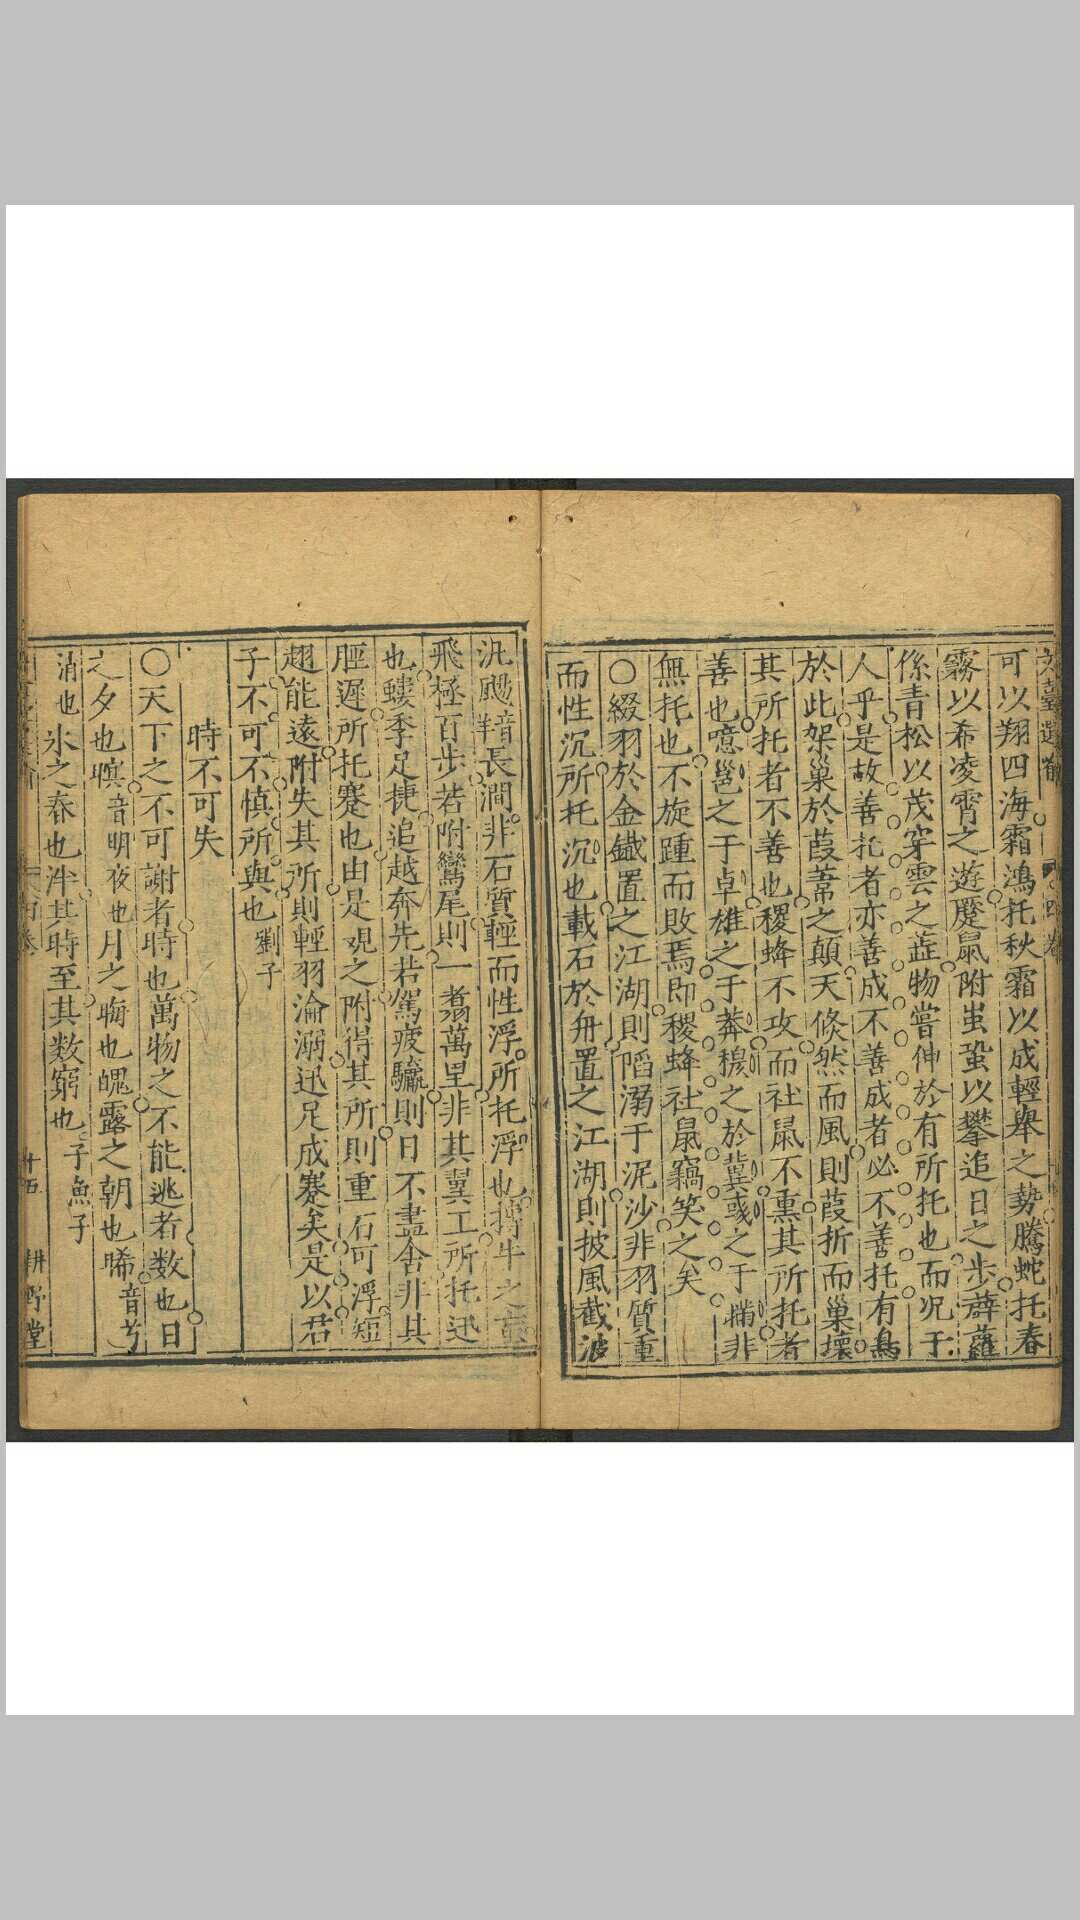 可以翔四海霜鴻托秋霜以成輕舉之勢騰蛇托春
霧以希凌霄之遊蹷鼠附蚷蛩以攀追日之步薜蘿
係青松以茂穿雲之蕋物嘗伸於有所托也而况于
人乎是故善托者亦善成不善成者必不善托有鳥
於此架巢於葭葦之顛天倏然而風則葭折而巢壞
其所托者不善也稷蜂不攻而社鼠不熏其所托者
善也噫邕之于卓雄之于莽之於冀彧之于瞞非
無托也不旋踵而敗焉即稷蜂社鼠竊笑之矣
○綴羽於金鐵置之江湖則陷溺于泥沙非羽質重
而性沉所托沉也載石於舟置之江湖則披風截波
汎颺長澗非石質輕而性浮所托浮也搏牛之䖟
飛極百步若附鸞尾則一翥萬里非其翼工所托迅
也蟻季足捷追越奔先若駕疲驢則日不盡舍非其
脛遲所托蹇也由是观之附得其所則重石可浮短
翅能遠附失其所則輕羽淪溺迅足成蹇矣是以君
子不可不慎所與也劉子
時不可失
○天下之不可謝者時也萬物之不能逃者数也日
之夕也暝音明夜也月之晦也魄露之朝也晞音兮
消也氷之春也泮其時至其数窮也子魚子
十五
耕野堂